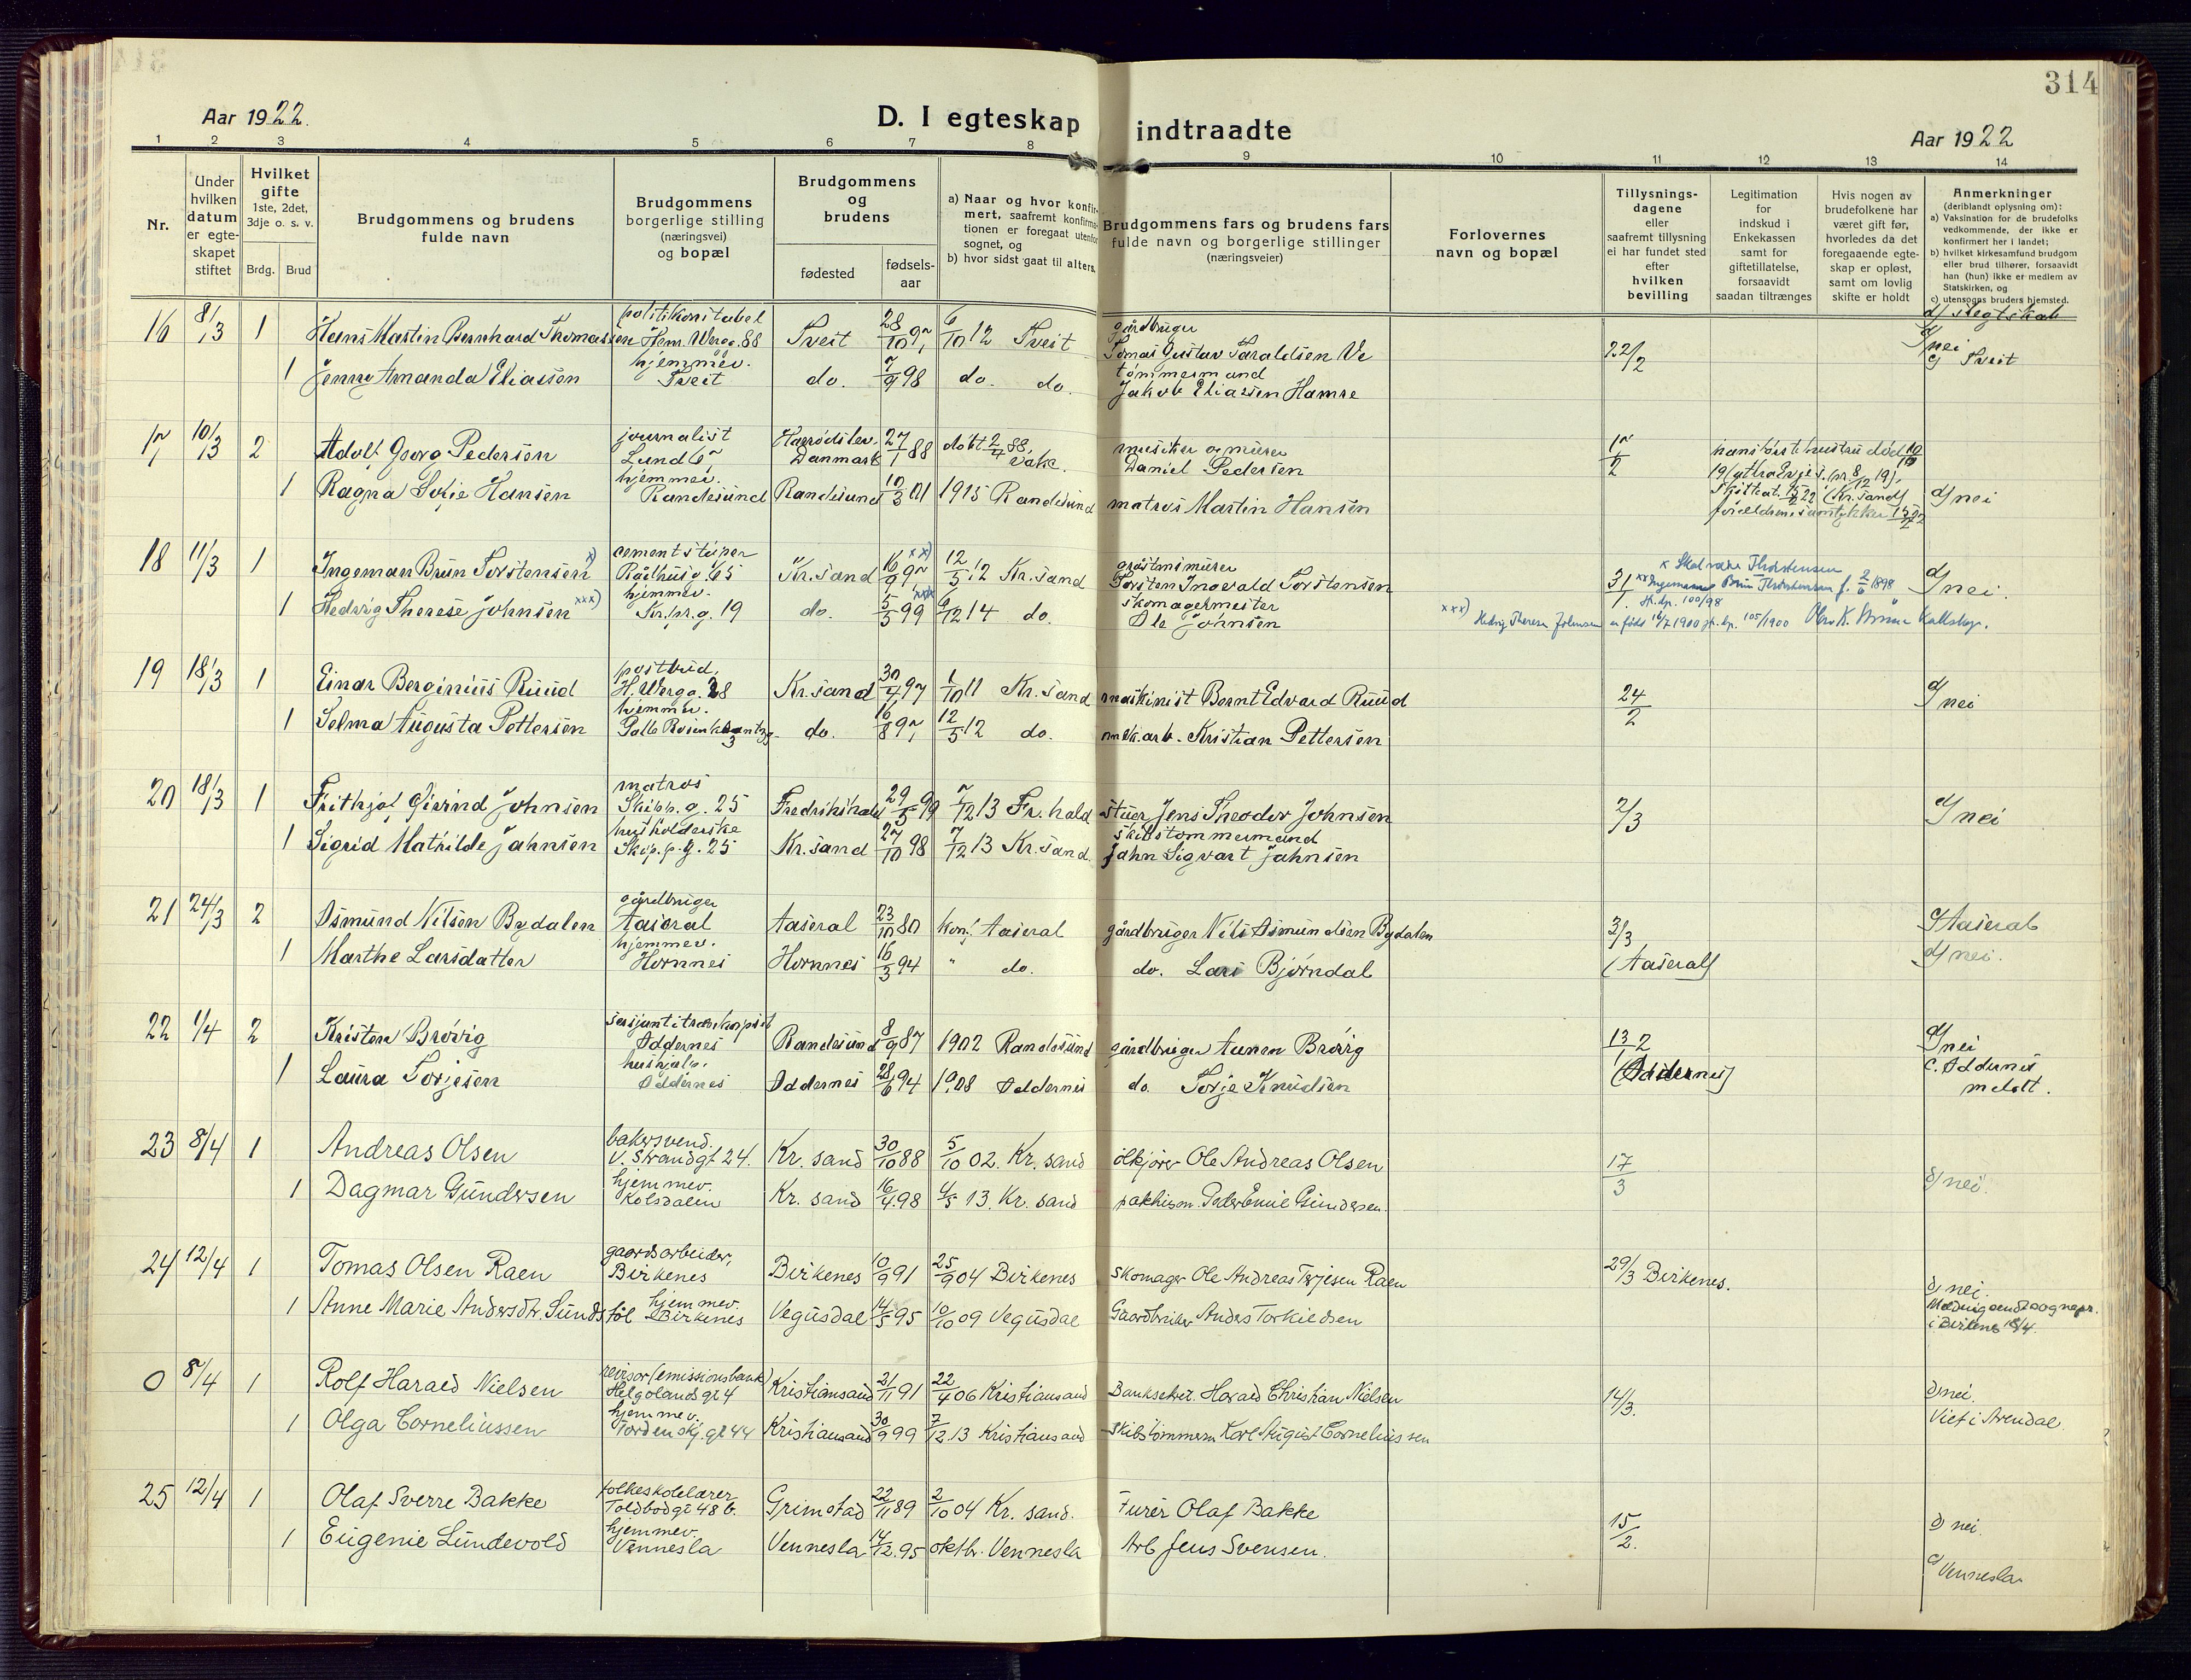 314
Aar 1922.
D. I egteskap indtraadte
Aar 1922
1 2 3 4 5 6 7 8 9 10 11 12 13 14
Nr.
Under hvilken datum er egteskapet stiftet
Hvilket gifte 1ste, 2det, 3dje o. s. v.
Brdg. Brud
Brudgommens og brudens fulde navn
Brudgommens borgerlige stilling (næringsvei) og bopæl
Brudgommens og brudens
fødested
fødselsaar
a) Naar og hvor konfirmert, saafremt konfirmationen er foregaat utenfor sognet, og
b) hvor sidst gaat til alters.
Brudgommens fars og brudens fars fulde navn og borgerlige stillinger (næringsveier)
Forlovernes navn og bopæl
Tillysningsdagene eller saafremt tillysning ei har fundet sted efter hvilken bevilling
Legitimation for indskud i Enkekassen samt for giftetillatelse, forsaavidt saadan tiltrænges
Hvis nogen av brudefolkene har været gift før, hvorledes da det foregaaende egteskap er opløst, samt om lovlig skifte er holdt
Anmerkninger (deriblandt oplysning om):
a) Vaksination for de brudefolks vedkommende, der ikke er konfirmert her i landet;
b) hvilket kirkesamfund brudgom eller brud tilhører, forsaavidt han (hun) ikke er medlem av Statskirken, og
c) utensogns bruders hjemsted.
d) slegtskab
16 8/3 1 Hans Martin Bernhard Thomassen politikonstabel Henr. Werg. 88 Tveit 28/10 97 6/10 12 Tveit gårdbruger Tomas Gustav Taraldsen Ve 22/2 d) nei c) Tveit
1 Jenny Amanda Eliassen hjemmev. Tveit do. 7/9 98 do. do. tømmermand Jakob Eliassen Hamre
17 10/3 2 Adolf Georg Pedersen journalist Lund 67 Danmark 27/1 88 døbt 2/4 88, musiker og murer Daniel Pedersen 17/2 hans første hustru død
1 Ragna Sofie Hansen hjemmev. Randesund Randesund 10/3 01 1915 Randesund matros Martin Hansen d) nei
18 11/3 1 Ingeman Brun Torstensen x) cementstøper Rådhusg. 65 Kr.sand 16/9 97 xx) 12/5 12 Kr.sand gråstensmurer Torsten Ingvald Torstensen 31/1. d) nei.
x Skal være Thorstensen
xx Ingemann Brun Thorstensen f. 2/6 1898 jf. dp. 100/98
1 Hedvig Therese Johnsen xxx) hjemmev. Kr.pr.g. 19 do. 5/5 99 xxx 6/12 14 do. skomagermester Ole Johnsen
xxx) Hedvig Therese Johnsen er født 16/7 1900 jf. dp. 105/1900
19 18/3 1 Einar Berginius Ruud postbud, H. Werg. 28 Kr.sand 30/4 97 1/10 11 Kr.sand maskinist Bernt Edvard Ruud 24/2 d) nei
1 Selma Augusta Pettersen hjemmev. Palle Rosenkrantzg. 3 do. 16/8 97 12/5 12 do. mek.arb. Kristian Pettersen
20 18/3 1 Frithjof Øivind Johnsen matros Skipp.g. 25 Fredrikshald 29/5 99 7/12 13 Fr.hald stuer Jens Theodor Johnsen 2/3 d) nei
1 Sigrid Mathilde Jahnsen husholderske Skip.p.g. 25 Kr.sand 27/10 98 7/12 13 Kr.sand. skibstømmermand Jahn Sigvart Jahnsen
21 24/3 2 Osmund Nilsen Bygdalen gårdbruger Aaseral Aaseral 23/10 80 konf. Aaseral gårdbruger Nils Osmundsen Bygdalen 3/3 (Aaseral) c) Aaseral d) nei.
1 Marthe Larsdatter hjemmev. Hornnes Hornnes 16/3 94 " do. do. Lars Bjørndal
22 1/4 2 Kristen Brøvig Oddernes Randesund 8/9 87 1902 Randesund gårdbruger Aanen Brøvig 13/1 2 (Oddernes) d) nei c. Oddernes
1 Laura Torjesen hushjelp. Oddernes Oddernes 28/6 94 1908 Oddernes do. Torje Knudsen
23 8/4 1 Andreas Olsen bakersvend. V. Strandgt 24. Kr. sand 30/10 88 5/10 02. Kr. sand ølkjører Ole Andreas Olsen 17/3 d) nei.
1 Dagmar Gundersen hjemmev. Kolsdalen Kr. sand 16/4 98 4/5 13. Kr. sand Peder Emil Gundersen.
24 12/4 1 Tomas Olsen Raen gaardsarbeider, Birkenes Birkenes 10/9 91 25/9 04 Birkenes skomager Ole Andreas Terjesen Raen 29/3 Birkenes. d) nei.
1 Anne Marie Andersdtr. Sundsføl hjemmev. Birkenes Vegusdal 14/5 95 10/10 09 Vegusdal Gaardbruker Anders Torkildsen Melding sendt sognepr. i Birkenes 18/4.
0 8/4 1 Rolf Harald Nielsen revisor (emissionsbank) Helgolandsgt 4 Kristiansand 21/11 91 22/4 06 Kristiansand Banksekret. Harald Christian Nielsen 14/3. d) nei. Viet i Arendal
1 Olga Corneliussen hjemmev. Tordenskj. gt 44 Kristiansand 30/9 99 7/12 13 Kristiansand skibstømmerm Karl August Corneliussen
25 12/4 1 Olaf Sverre Bakke folkeskolelærer Toldbodgt 48 b. Grimstad 22/11 89 2/10 04 Kr. sand. Furer Olaf Bakke 15/2. d) nei.
1 Eugenie Lundevold hjemmev. Vennesla Vennesla 14/12. 95 oktbr. Vennesla Arb Jens Svensen. c) Vennesla